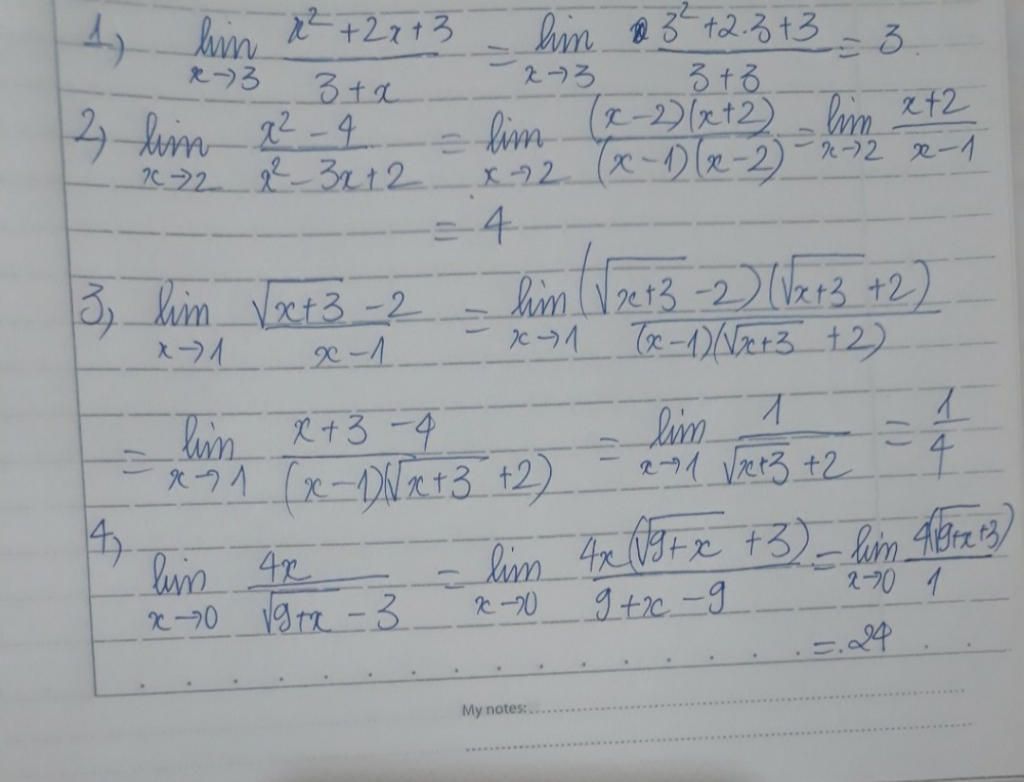 1) lim x→3 (x² + 2x + 3)/(3 + x) = lim x→3 (3² + 2.3 + 3)/(3 + 3) = 3.
2) lim x→2 (x² - 4)/(x² - 3x + 2) = lim x→2 ((x-2)(x+2))/((x-1)(x-2)) = lim x→2 (x+2)/(x-1)
= 4
3) lim x→1 (√(x+3) - 2)/(x - 1) = lim x→1 ((√(x+3) - 2)(√(x+3) + 2))/((x-1)(√(x+3) + 2))
= lim x→1 (x + 3 - 4)/((x-1)(√(x+3) + 2)) = lim x→1 1/(√(x+3) + 2) = 1/4
4) lim x→0 4x/(√(9+x) - 3) = lim x→0 (4x(√(9+x) + 3))/(9 + x - 9) = lim x→0 (4(√(9+x) + 3))/1
= 24
My notes: